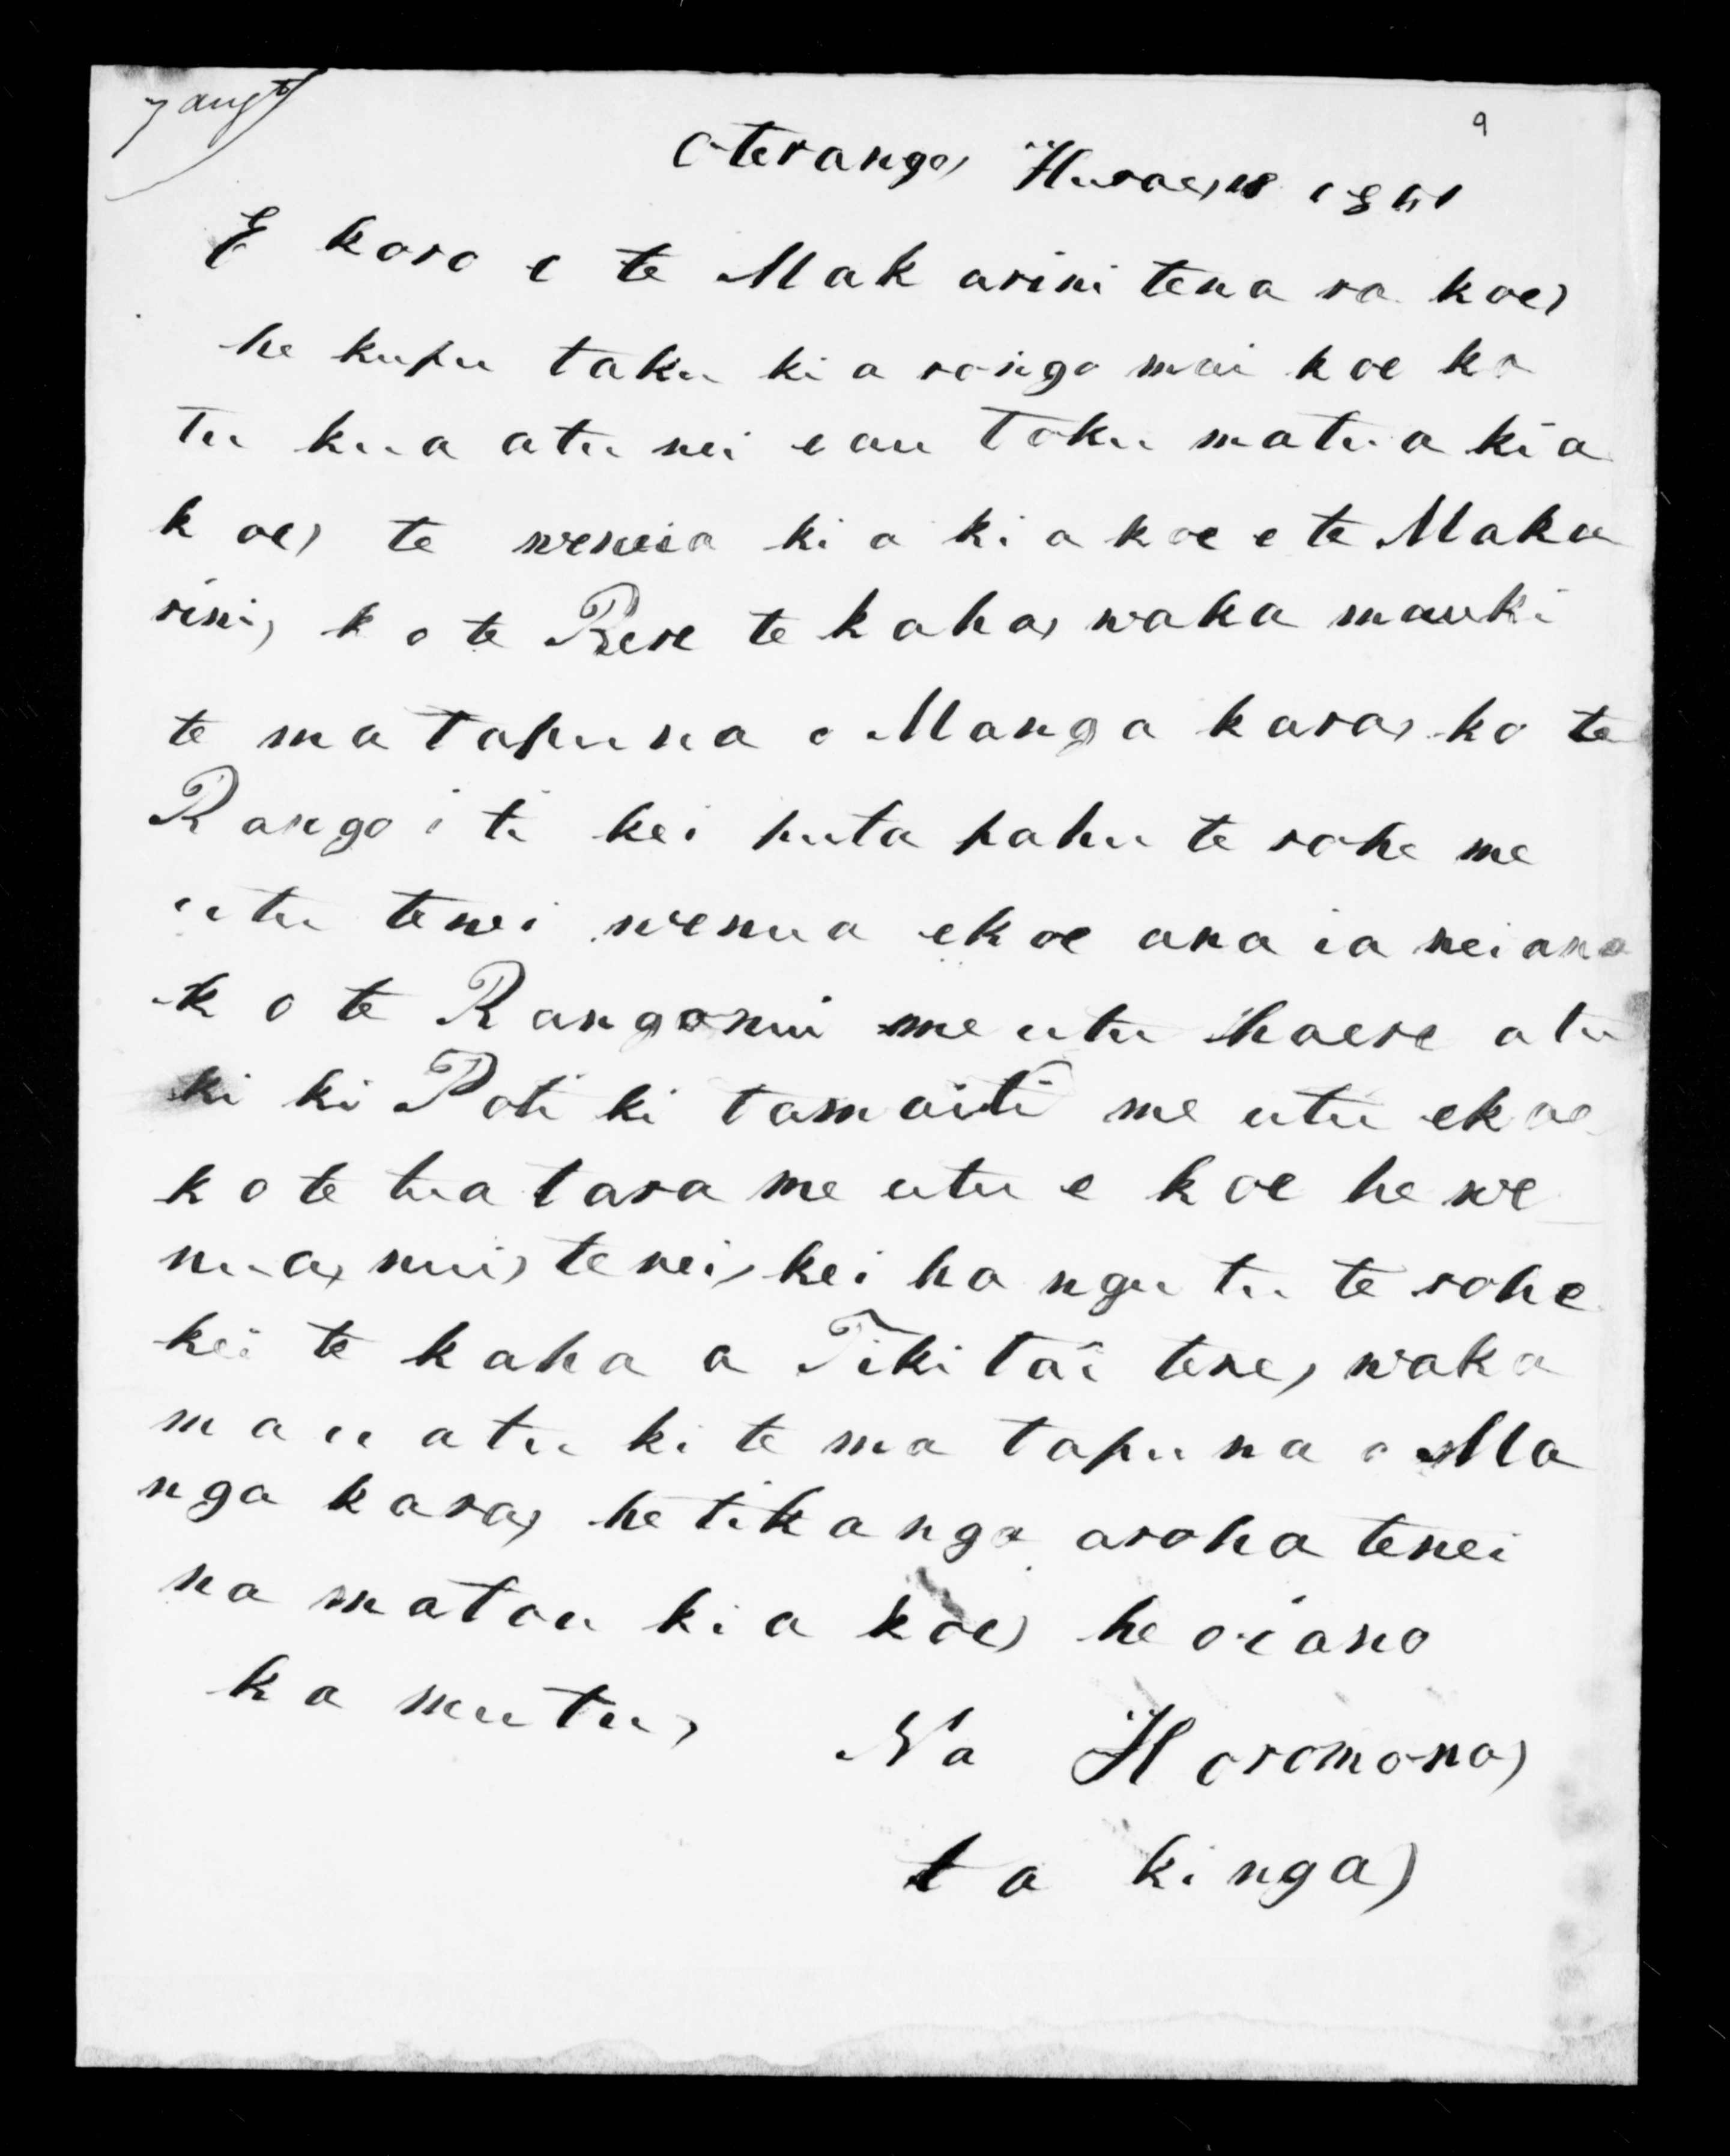 7 augt
9
Oteranga, Hurae, 18 1851
E koro e te Mak arini tena ra koe,
he kupu taku ki a rongo mai koe ko
tu kua atu nei e au toku matua ki a
k oe, te wenua ki a ki a koe e te Maka
rini, k o te Rere te kaha, waka mau ki
te ma tapuna o Manga kara, ko te
Rango i ti kei puta pahu te rohe me
utu tenei wenua e koe ana ia nei ana
k o te Rangonui me utu haere atu
ki ki Poti ki tamaiti me utu e koe
k o te tua tara me utu e koe he we
nua, nui, tenei, kei ha ngu tu te rohe
kei te kaha a Tiki tai tere, waka
m a u atu ki te ma tapu na o Ma
nga kara, he tikanga aroha tenei
na matou ki a koe, he oi ano
ka mutu,
Na Horomona,
ta ki nga,